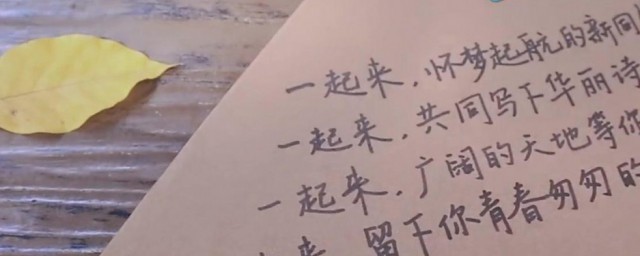 一起来，怀梦起航的新同
一起来，共同写下华丽诗
一起来，广阔的天地等你
来 留下你青春匆匆的